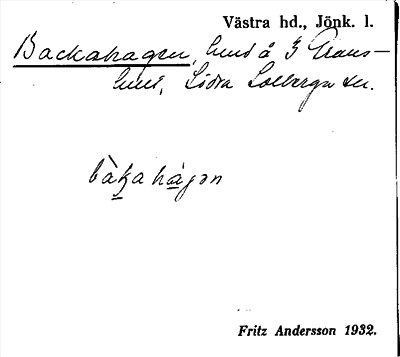 Västra hd., Jönk. l.
Backahagen, lund å 3 Trans-
lund, Södra Solberga sn.
bàka hàgən
Fritz Andersson 1932.